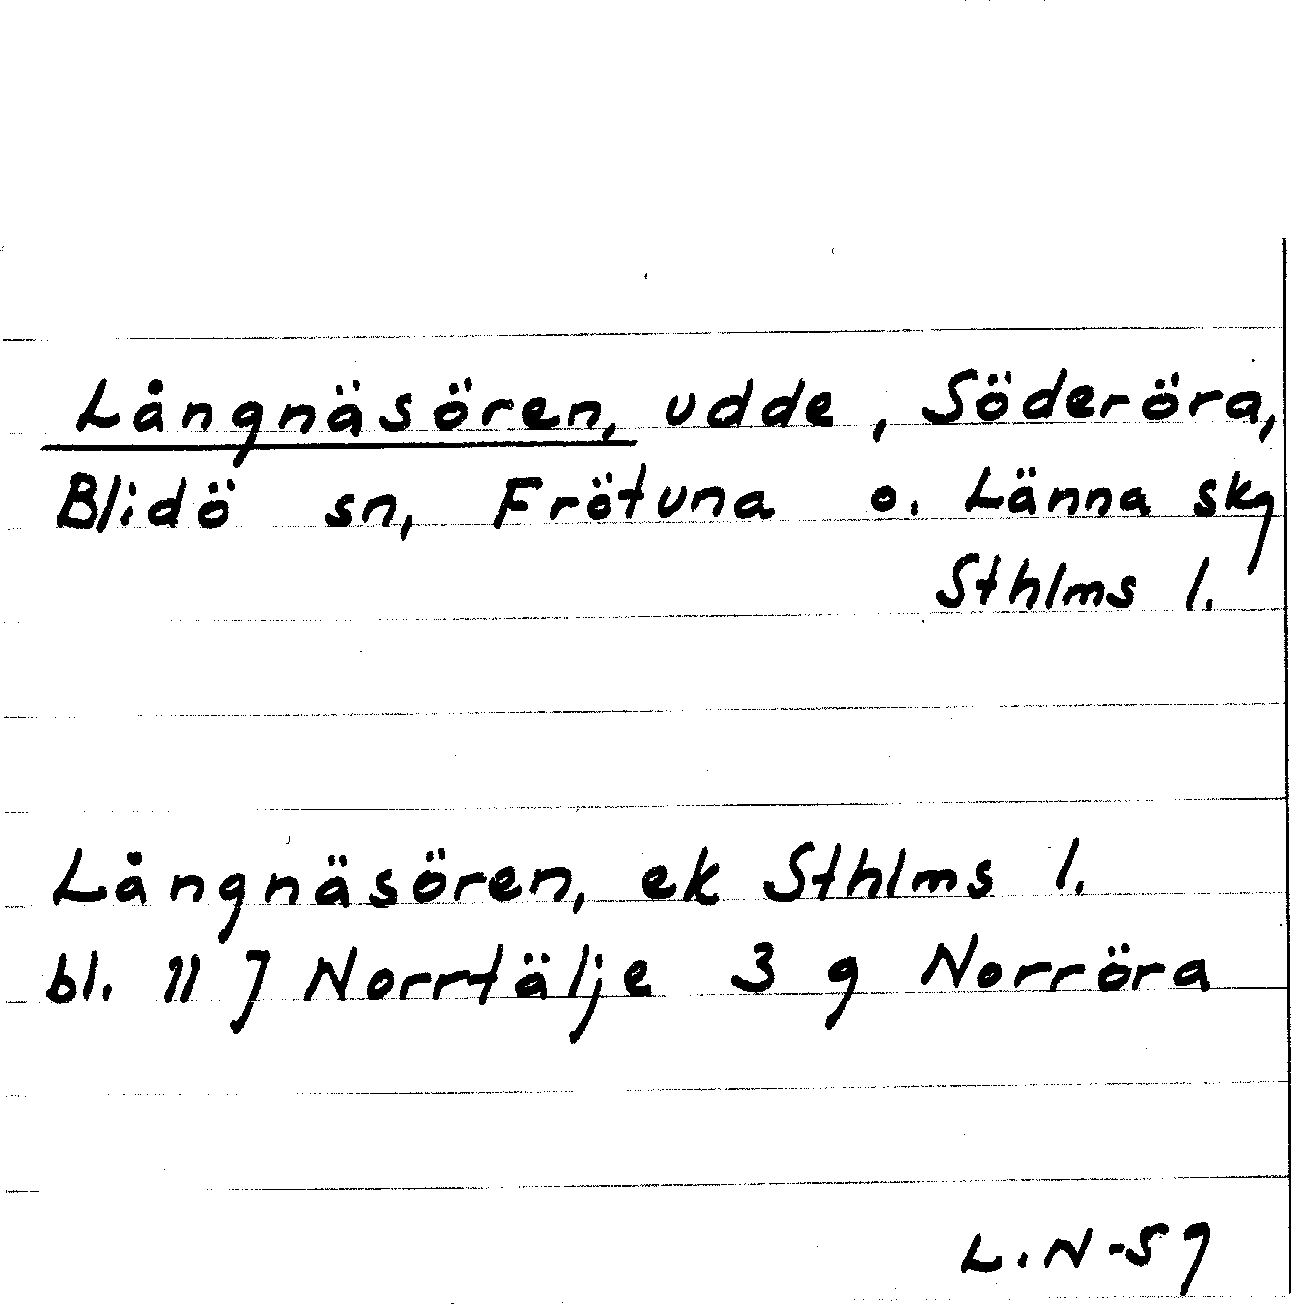 Långnäsören, udde, Söderöra,
Blidö sn, Frötuna o. Länna skg
Sthlms l.
Långnäsören, ek Sthlms l.
bl. 11 J Norrtälje 3 g Norröra
L.N-59